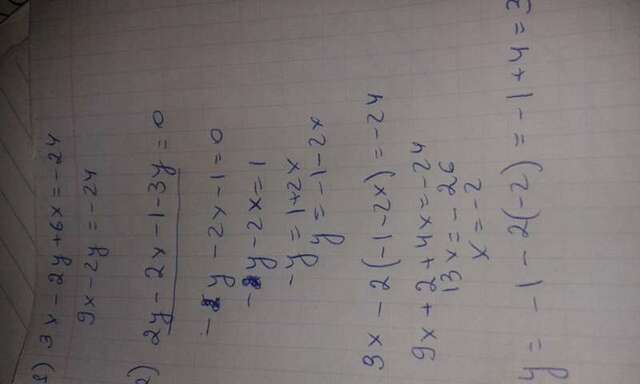 1) 3x - 2y + 6x = -24
9x - 2y = -24
2) 2y - 2x - 1 - 3y = 0
-y - 2x - 1 = 0
-y - 2x = 1
-y = 1 + 2x
y = -1 - 2x
9x - 2(-1 - 2x) = -24
9x + 2 + 4x = -24
13x = -26
x = -2
y = -1 - 2(-2) = -1 + 4 = 3